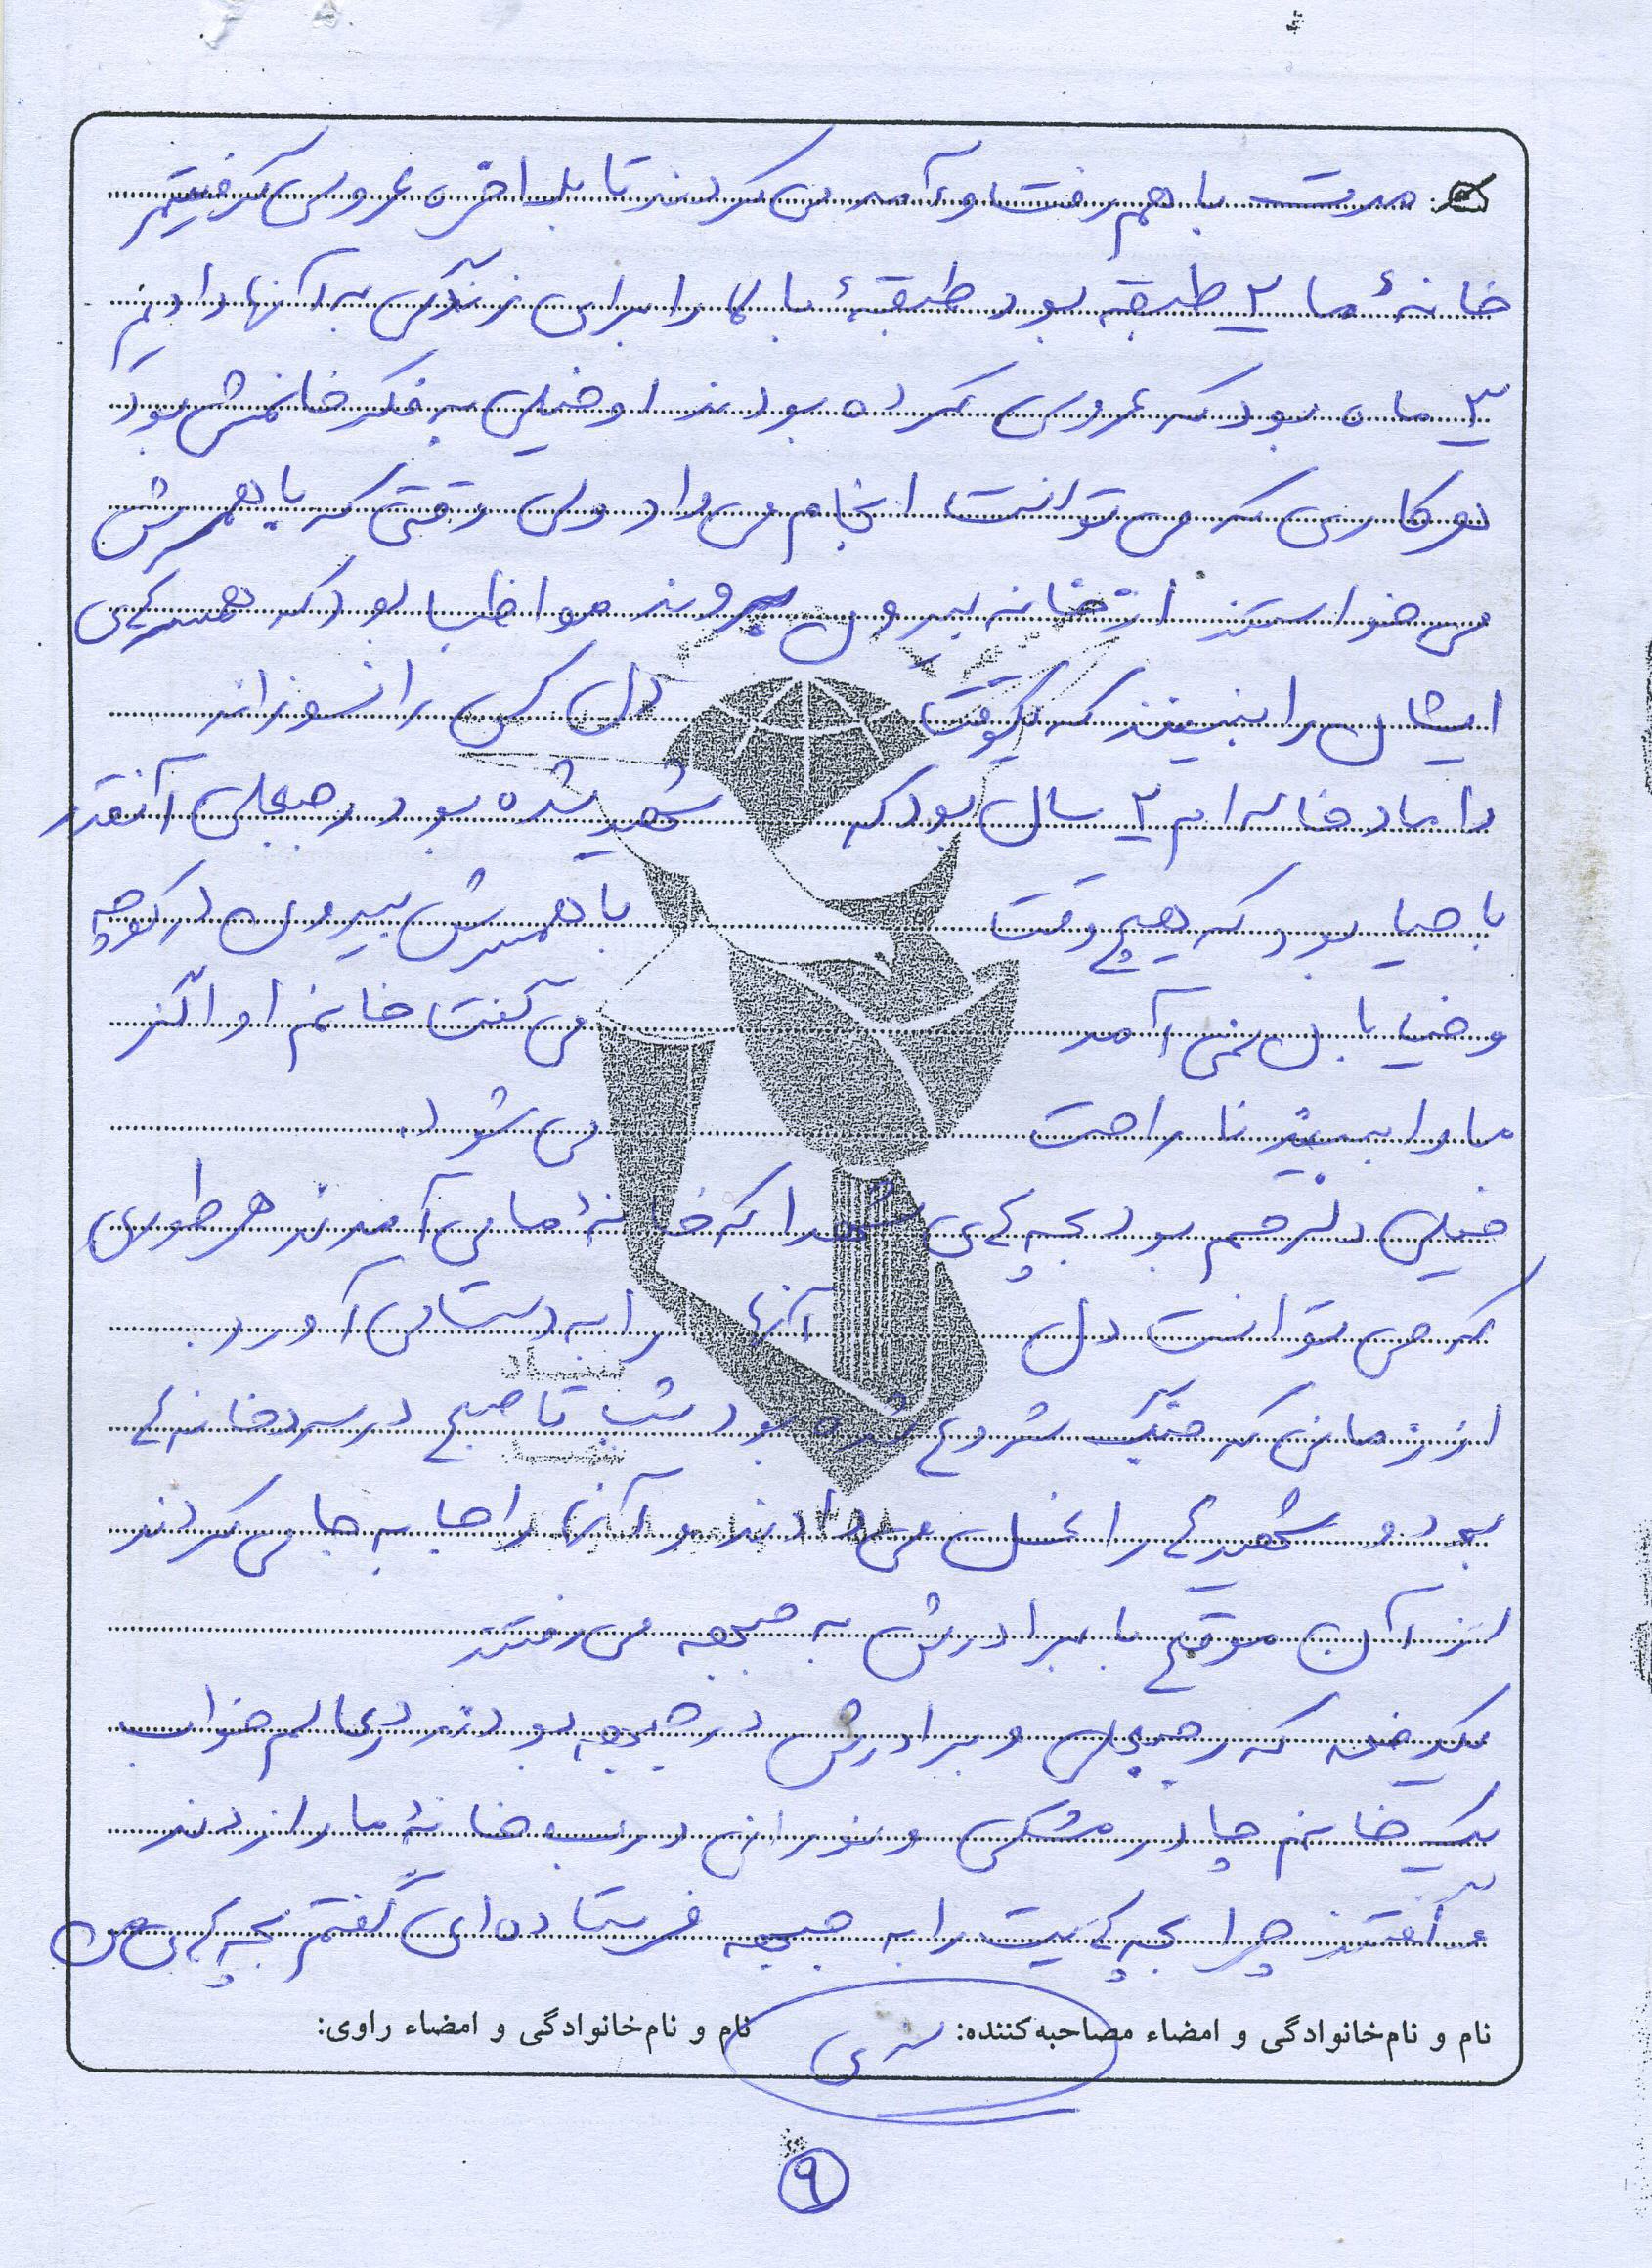 مدت با هم رفت و آمد می کردند تا بلاخره عروسی گرفتیم
خانهٔ ما ۲ طبقه بود طبقهٔ بالا را برای زندگی به آنها دادیم
۳ ماه بود که عروسی کرده بودند او خیلی به فکر خانمش بود
هر کاری که می توانست انجام می داد ولی وقتی که با همسرش
می خواستند از خانه بیرون بروند مواظب بود که همسرهای
ایشان را نبینند که یکوقت دل کسی را نسوزاند
داماد خاله ام ۲ سال بود که شهید شده بود رجبعلی آنقدر
با حیا بود که هیچ وقت با همسرش بیرون در کوچه
و خیابان نمی آمد می گفت خانم او اگر
ما را ببیند ناراحت می شود.
خیلی دلرحم بود بچه های شهدا که خانهٔ ما می آمدند هر طوری
که می توانست دل آنها را به دست می آورد.
از زمانی که جنگ شروع شده بود شب تا صبح در سردخانه ها
بود و شهید ها را غسل می دادند و آنها را جا به جا می کردند
از آن موقع با برادرش به جبهه می رفتند
یکدفعه که رجبعلی و برادرش در جبهه بودند در عالم خواب
یک خانم چادر مشکی و نورانی درب خانهٔ ما را زدند
و گفتند چرا بچه هایت را به جبهه فرستاده ای گفتم بچه های من
بنیاد
نام و نام‌خانوادگی و امضاء مصاحبه‌کننده: نام و نام‌خانوادگی و امضاء راوی:
۹